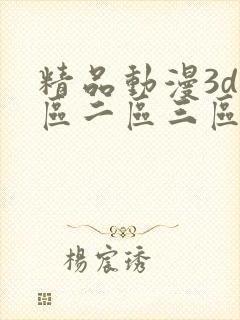 精品動漫3d
區二區三區
楊宸琇